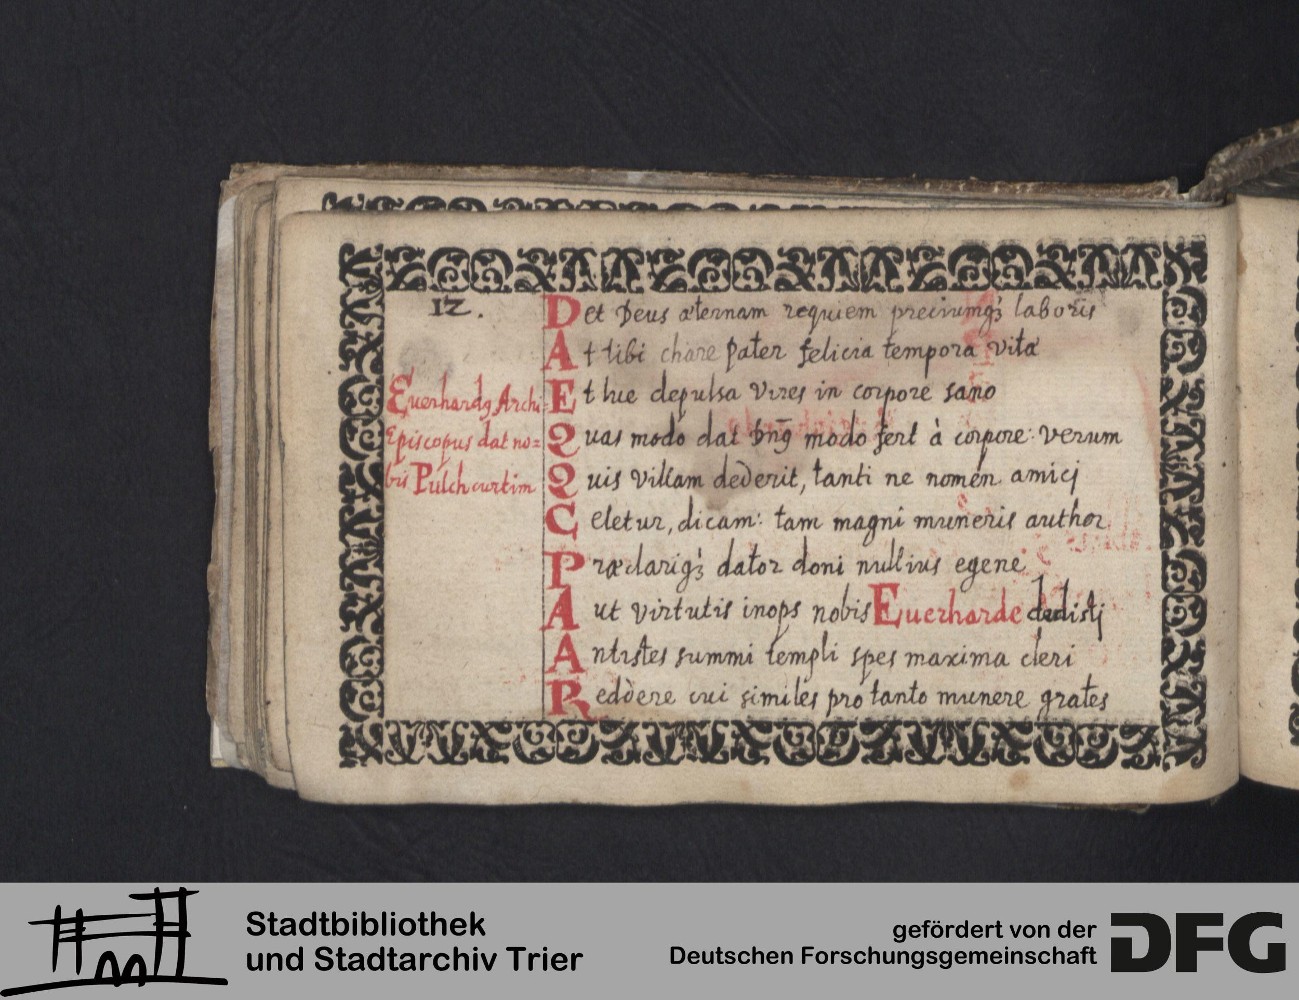 12.
Euerhardꝰ Archi-
Episcopus dat no=
bis Pulch curtim
Det Deus æternam requiem preciumqȝ laboris
At tibi chare Pater felicia tempora vitæ
Et lue depulsa vires in corpore sano
Quas modo dat dn̄ꝰ modo fert à corpore: verum
Quis villam dederit, tanti ne nomen amicj
Celetur, dicam: tam magni muneris author
Præclarigȝ dator doni nullius egene
Aut virtutis inops nobis Euerharde dedistj
Antistes summi templi spes maxima cleri
Reddere cui similes pro tanto munere grates
Stadtbibliothek
und Stadtarchiv Trier
gefördert von der
Deutschen Forschungsgemeinschaft
DFG